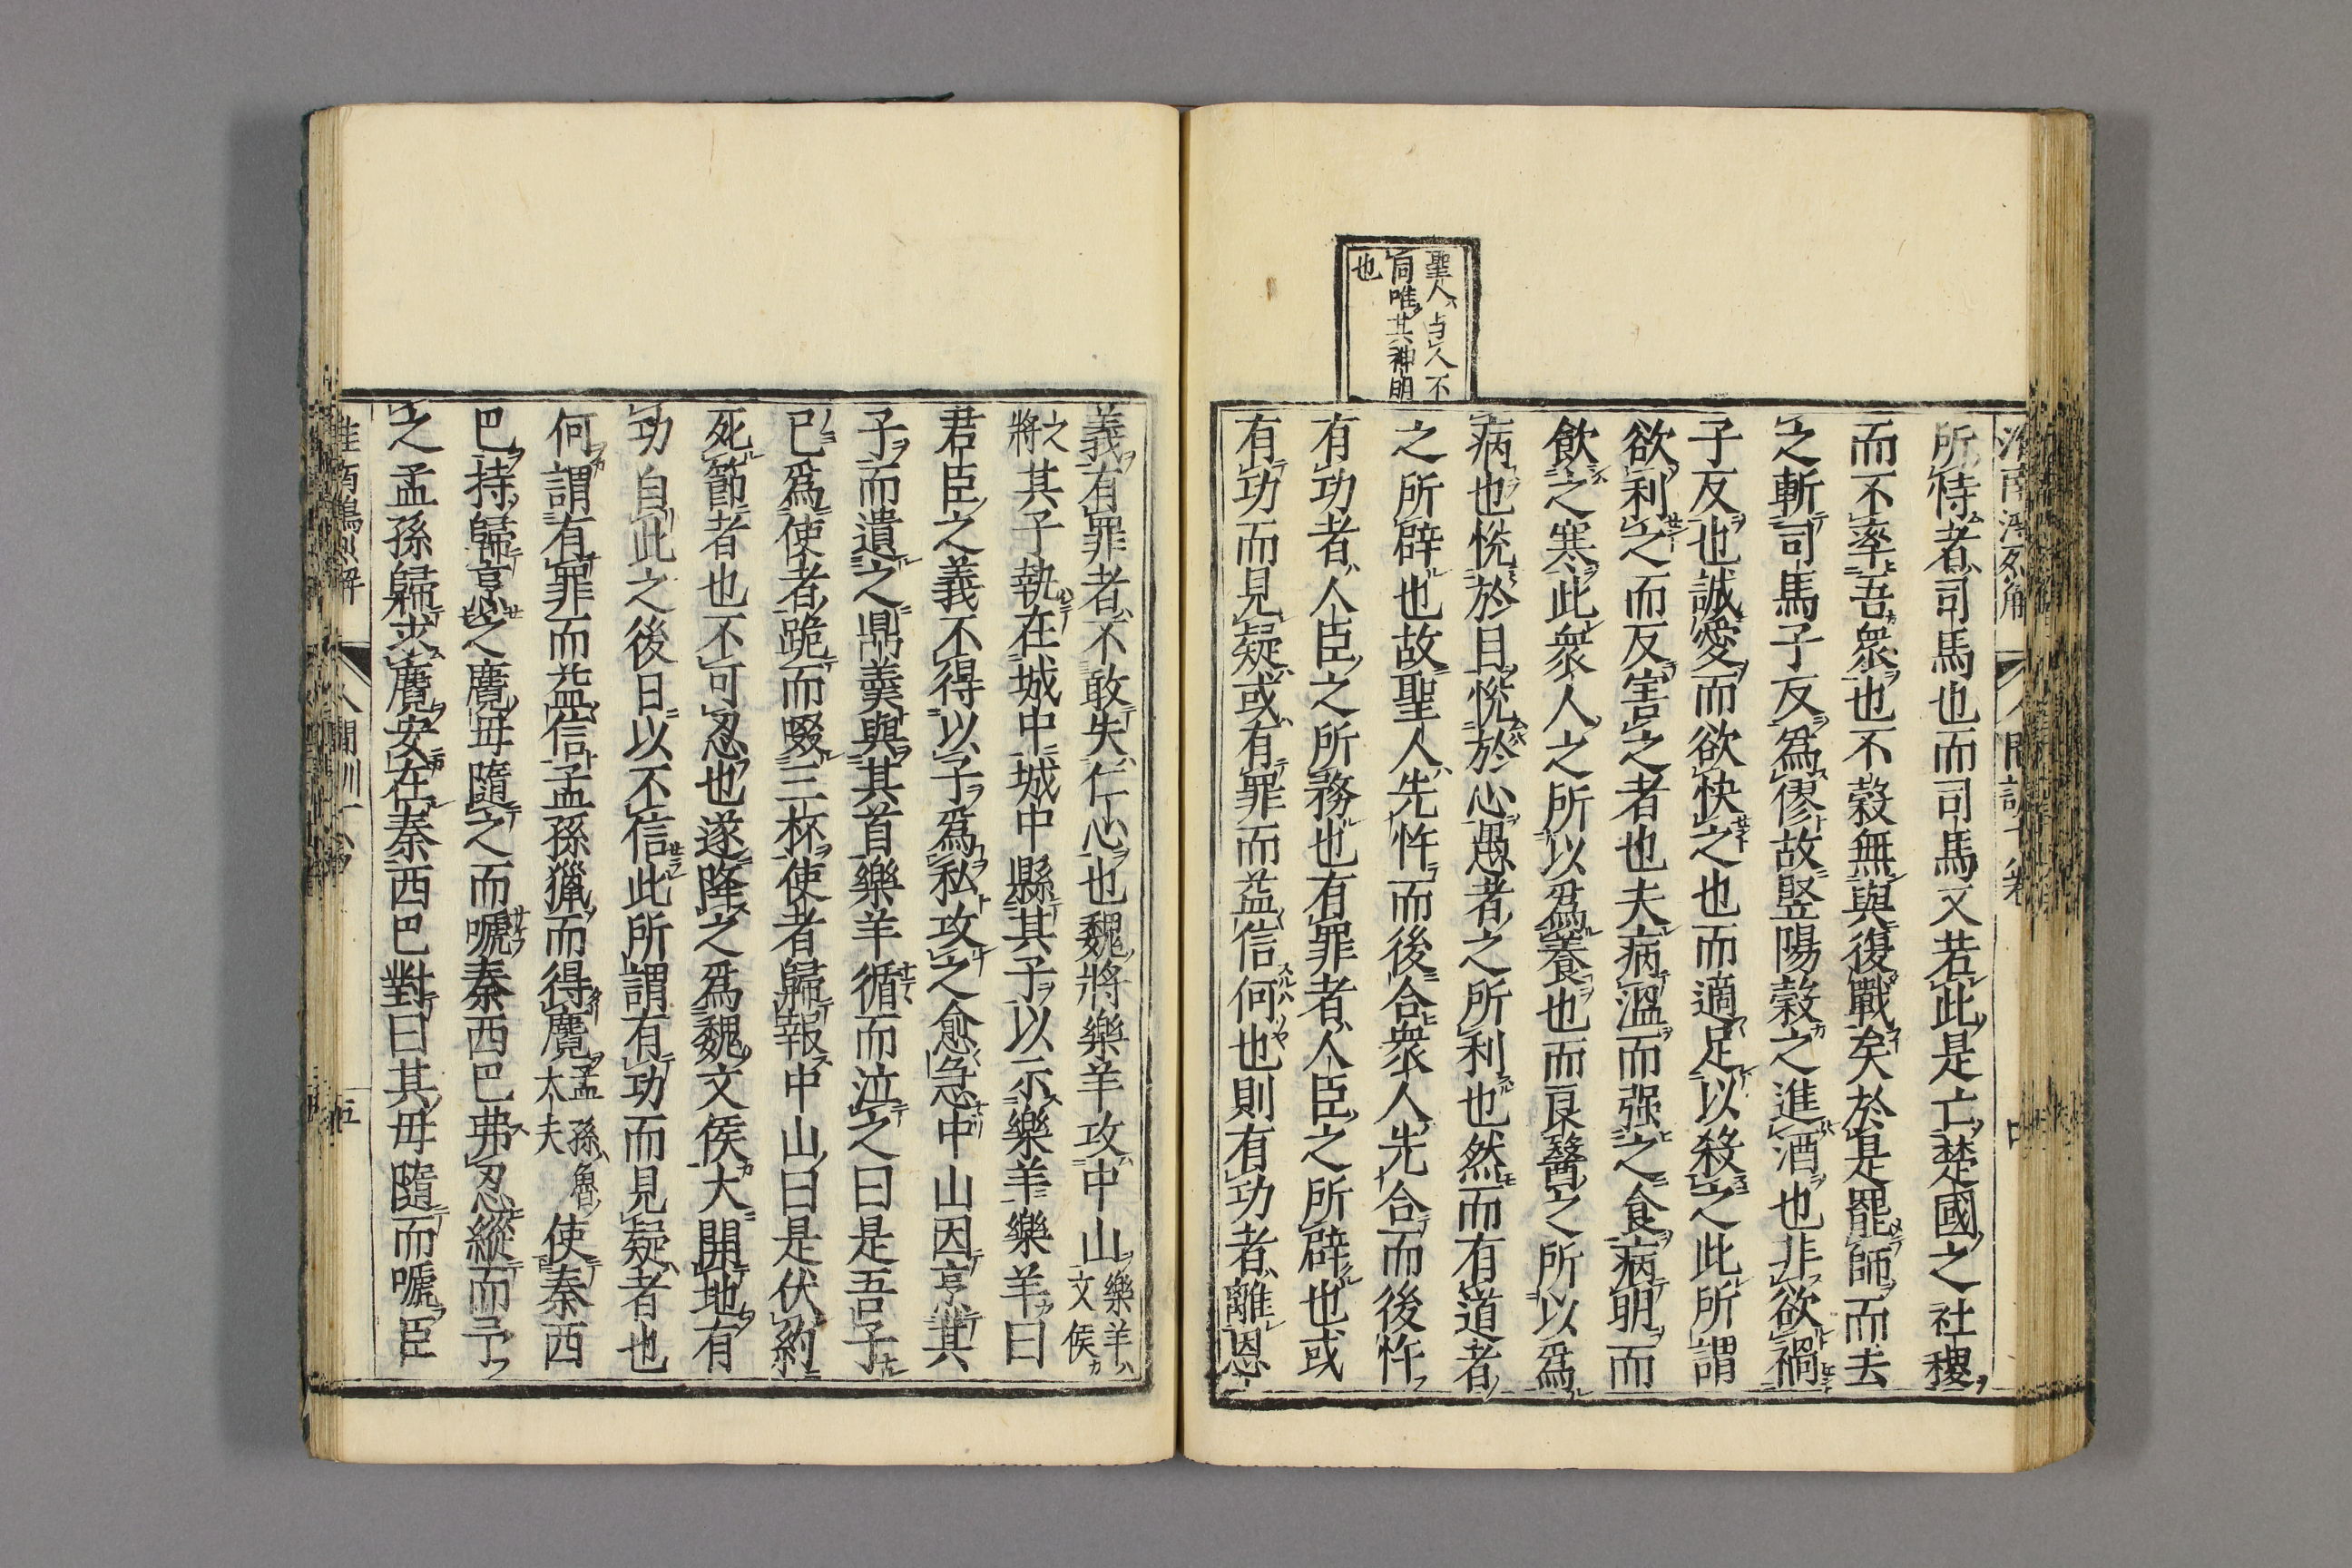 聖人与人不
同唯其神明
也
所恃者司馬也而司馬又若此是亡楚國之社稷
而不率吾衆也不穀無與復戰矣於是罷師而去
之斬司馬子反爲僇故竪陽穀之進酒也非欲禍
子反也誠愛而欲快之也而適足以殺之此所謂
欲利之而反害之者也夫病溫而强之食病明而
飲之寒此衆人之所以爲養也而良醫之所以爲
病也悅於目悅於心愚者之所利也然而有道者
之所辟也故聖人先忤而後合衆人先合而後忤
有功者人臣之所務也有罪者人臣之所辟也或
有功而見疑或有罪而益信何也則有功者離恩
義有罪者不敢失仁心也魏將樂羊攻中山樂羊文侯
之將其子執在城中城中縣其子以示樂羊樂羊曰
君臣之義不得以子爲私攻之愈急中山因烹其
子而遺之鼎羹與其首樂羊循而泣之曰是吾子
已爲使者跪而啜三杯使者歸報中山曰是伏約
死節者也不可忍也遂降之爲魏文侯大開地有
功自此之後日以不信此所謂有功而見疑者也
何謂有罪而益信孟孫獵而得麑孟孫魯大夫使秦西
巴持歸烹之麑母隨之而嗁秦西巴弗忍縱而予
之孟孫歸求麑安在秦西巴對曰其母隨而嗁臣